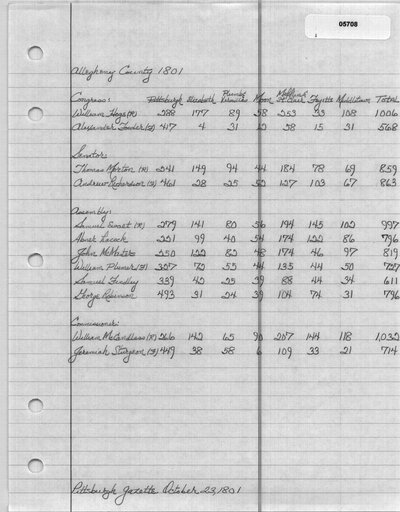 05708
Allegheny County 1801
Congress: Pittsburgh Elizabeth Plum & Versailles Moon St. Clair Fayette Middletown Total
William Hoge (R) 288 177 89 58 253 33 108 1006
Alexander Fowler (F) 417 4 31 12 58 15 31 568
Senator:
Thomas Morton (R) 241 149 94 44 184 78 69 859
Andrew Richardson (F) 461 28 25 52 127 103 67 863
Assembly:
Samuel 279 141 80 56 194 145 102 997
Abner Lacock 221 99 40 54 174 122 86 796
John McMasters 250 122 82 48 174 46 97 819
William Plumer (F) 55 44 135 44 50
Samuel Findley 339 42 25 39 88 44 34 611
George Robinson 493 31 24 39 104 74 31 796
Commissioner:
William McCandless (R) 266 142 65 90 207 144 118 1,032
Jeremiah Sturgeon (F) 449 38 58 6 109 33 21 714
Pittsburgh Gazette October 23, 1801